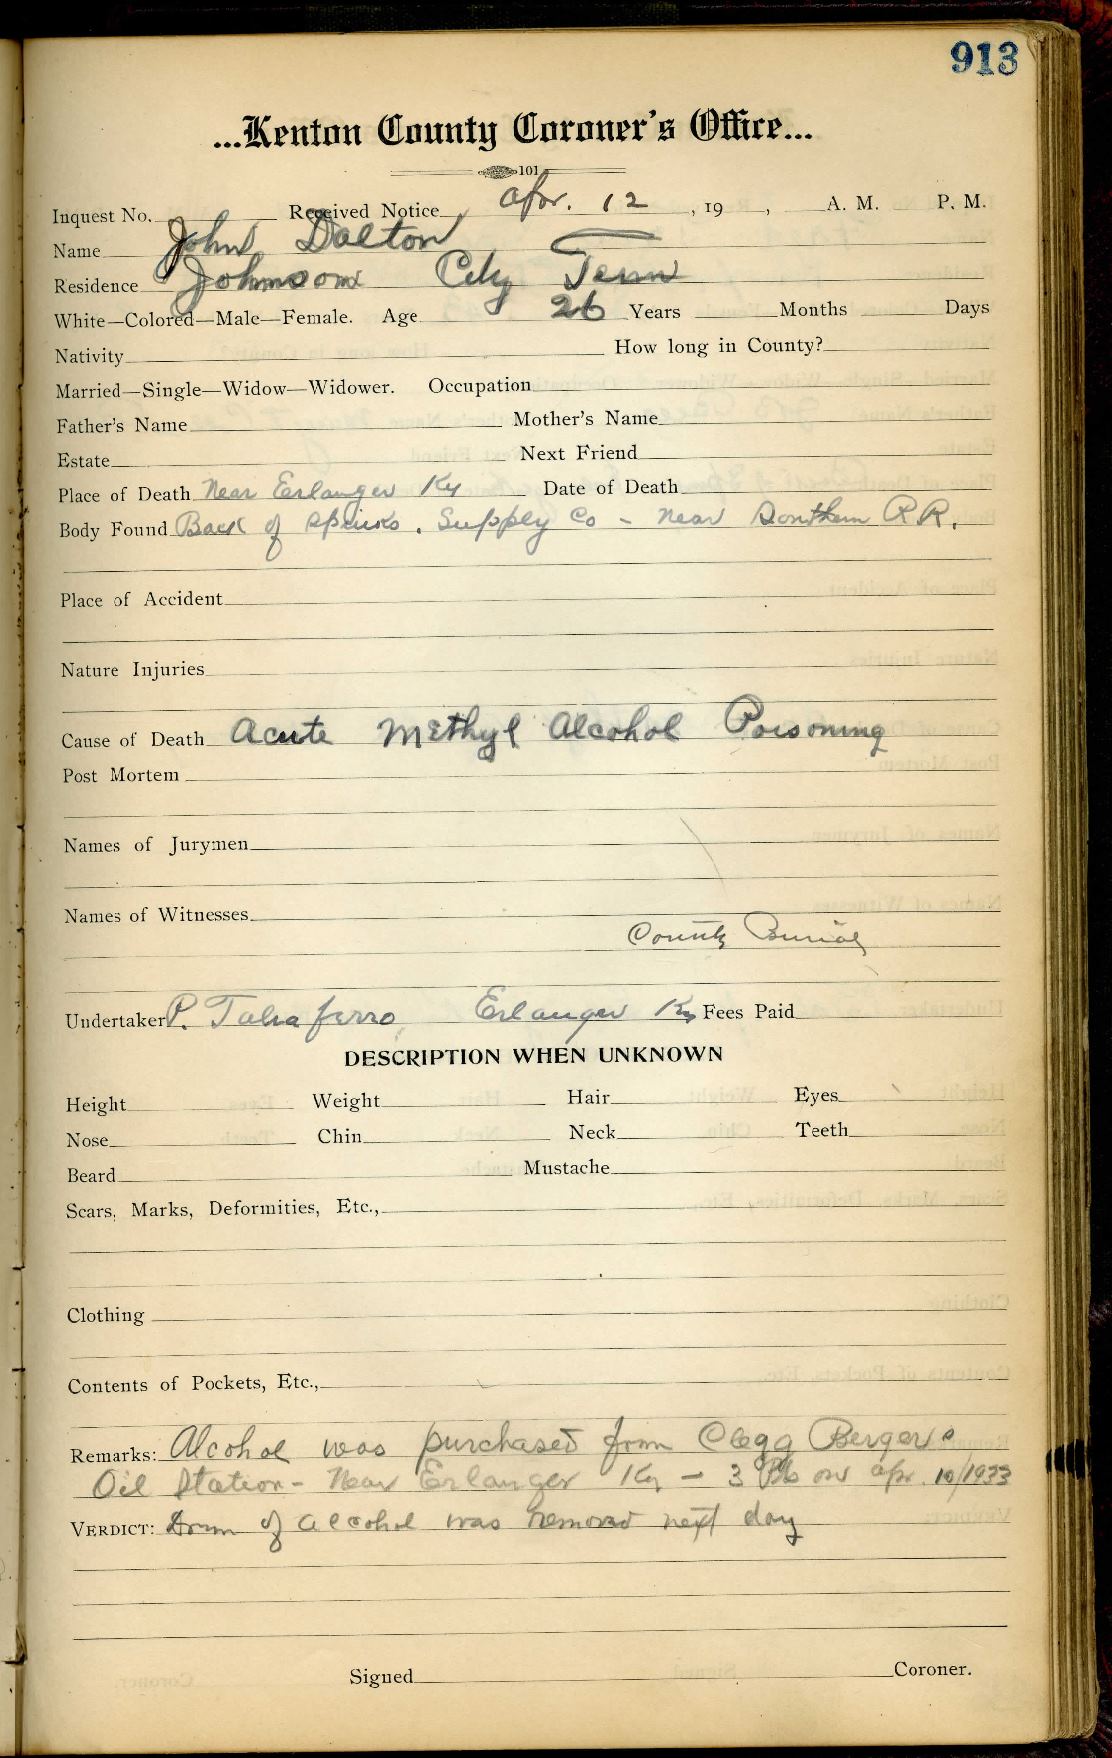 913
...Kenton County Coroner's Office...
101
Inquest No. Received Notice Apr. 12, 19 , A. M. P. M.
Name John Dalton
Residence Johnson City Tenn
White—Colored—Male—Female. Age 26 Years Months Days
Nativity How long in County?
Married—Single—Widow—Widower. Occupation
Father's Name Mother's Name
Estate Next Friend
Place of Death Near Erlanger Ky Date of Death
Body Found Back of Spinks. Supply Co - near Southern R.R.
Place of Accident
Nature Injuries
Cause of Death Acute Methyl Alcohol Poisoning
Post Mortem
Names of Jurymen
Names of Witnesses
County Burial
Undertaker P. Taliaferro, Erlanger Ky Fees Paid
DESCRIPTION WHEN UNKNOWN
Height Weight Hair Eyes
Nose Chin Neck Teeth
Beard Mustache
Scars, Marks, Deformities, Etc.,
Clothing
Contents of Pockets, Etc.,
Remarks: Alcohol was purchased from Clegg Bergers
Oil Station - Near Erlanger Ky - 3 on Apr. 10/1933
VERDICT: Drum of alcohol was removed next day
Signed Coroner.